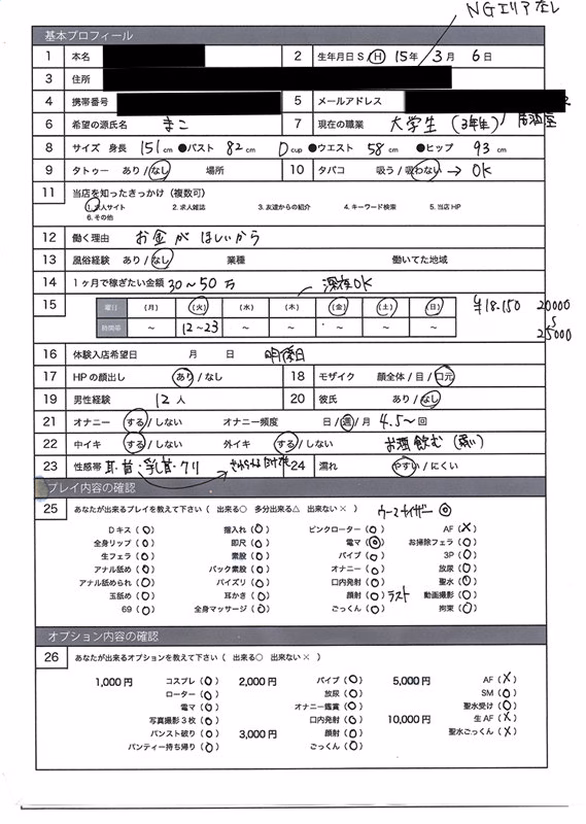 NGエリアなし
基本プロフィール
1 本名 2 生年月日 S / H 15年 3月 6日
3 住所
4 携帯番号 5 メールアドレス
6 希望の源氏名 まこ 7 現在の職業 大学生(3年生)/居酒屋
8 サイズ 身長 151cm ●バスト 82cm Dcup ●ウエスト 58cm ●ヒップ 93cm
9 タトゥー あり / なし 場所 10 タバコ 吸う / 吸わない → OK
11 当店を知ったきっかけ(複数可)
1.求人サイト 2.求人雑誌 3.友達からの紹介 4.キーワード検索 5.当店HP
6.その他
12 働く理由 お金がほしいから
13 風俗経験 あり / なし 業種 働いてた地域
14 1ヶ月で稼ぎたい金額 30~50万 深夜OK
15 曜日 (月) (火) (水) (木) (金) (土) (日) ¥18.150 20000
時間帯 ~ 12~23 ~ ~ ~ ~ ~ 25000
16 体験入店希望日 月 日
17 HPの顔出し あり / なし 18 モザイク 顔全体 / 目 / 口元
19 男性経験 12人 20 彼氏 あり / なし
21 オナニー する / しない オナニー頻度 日 / 週 / 月 4.5~回
22 中イキ する / しない 外イキ する / しない お酒飲む(弱い)
23 性感帯 耳・首・乳首・クリ 24 濡れ やすい / にくい
プレイ内容の確認
25 あなたが出来るプレイを教えて下さい(出来る○ 多分出来る△ 出来ない×) ウーマナイザー◎
Dキス(○) 指入れ(○) ピンクローター(○) AF(×)
全身リップ(○) 即尺(○) 電マ(◎) お掃除フェラ(○)
生フェラ(○) 素股(○) バイブ(○) 3P(○)
アナル舐め(○) バック素股(○) オナニー(○) 放尿(○)
アナル舐められ(○) パイズリ(○) 口内発射(○) 聖水(○)
玉舐め(○) 耳かき(○) 顔射(○)ラスト 動画撮影(○)
69(○) 全身マッサージ(○) ごっくん(○) 拘束(○)
オプション内容の確認
26 あなたが出来るオプションを教えて下さい(出来る○ 出来ない×)
1,000円 コスプレ(○) 2,000円 バイブ(○) 5,000円 AF(×)
ローター(○) 放尿(○) SM(○)
電マ(○) オナニー鑑賞(○) 聖水受け(○)
写真撮影3枚(○) 口内発射(○) 10,000円 生AF(×)
パンスト破り(○) 3,000円 顔射(○) 聖水ごっくん(×)
パンティー持ち帰り(○) ごっくん(○)